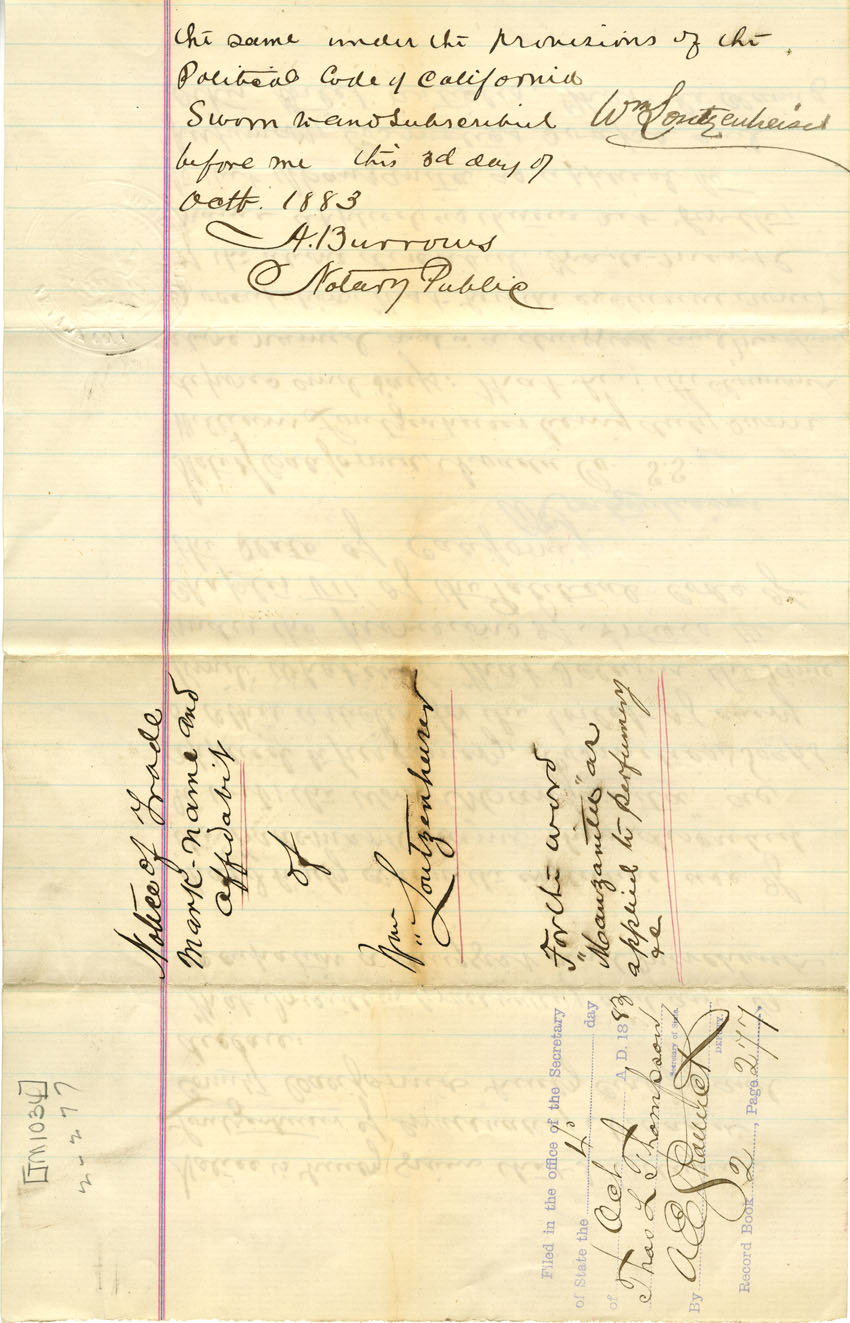 the same under the provisions of the
Political Code of California
Sworn to and Subscribed
Wm Loutzenheiser
before me this 3d day of
Octb. 1883
A. Burrows
Notary Public
Notice of Trade
Mark-Name and
Affidavit
of
Wm
Loutzenheiser
For the word
"Manzanita" as
applied to perfumery
&c
Filed in the office of the Secretary
of State the 4th day
of Oct A. D. 1883
Thos L Thompson
Secretary of State.
By
DEPUTY.
Record Book 2, Page 277
[TM1034]
2-277